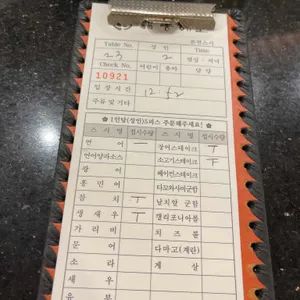 Table No. 성 인 론런스시
23 2 Time
Check No. 어린이 유아 점심 · 저녁
10921 담 당
입 장 시 간 12:52
주류 및 기타
✿ 1인당(성인)5피스 주문해주세요! ✿
스 시 명 접시수량 스 시 명 접시수량
연 어 一 장어스테이크 T
연어양파소스 소고기스테이크 T
광 어 베이컨스테이크
홍 민 어 타꼬와사비군함
참 치 T 날치알 군함
생 새 우 T 캘리포니아롤
가 리 비 치 즈 롤
문 어 다마고(계란)
소 라 게 살
새 우
유 부